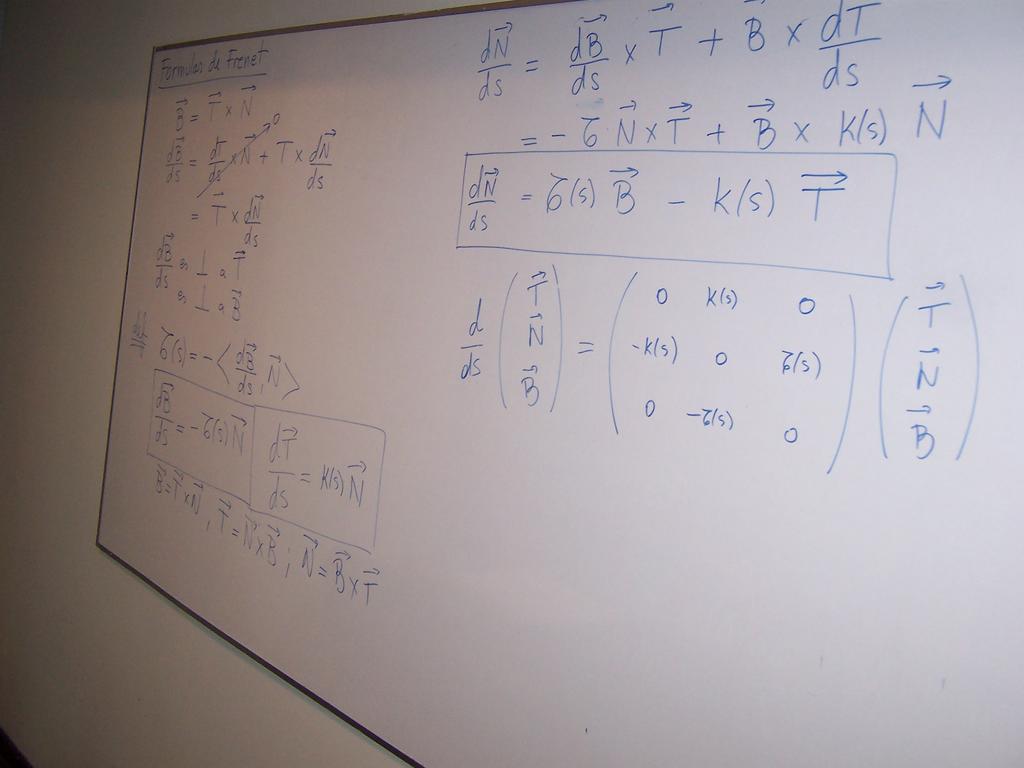 Fórmulas de Frenet
B⃗ = T⃗ × N⃗
dB⃗/ds = dT⃗/ds × N⃗ + T × dN⃗/ds
0
= T⃗ × dN⃗/ds
dB⃗/ds es ⊥ a T⃗
es ⊥ a B⃗
def
τ(s) = - < dB⃗/ds , N⃗ >
dB⃗/ds = -τ(s) N⃗
dT⃗/ds = K(s) N⃗
B⃗ = T⃗ × N⃗ , T⃗ = N⃗ × B⃗ ; N⃗ = B⃗ × T⃗
dN⃗/ds = dB⃗/ds × T⃗ + B⃗ × dT⃗/ds
= - τ N⃗ × T⃗ + B⃗ × K(s) N⃗
dN⃗/ds = τ(s) B⃗ - K(s) T⃗
d/ds ( T⃗ N⃗ B⃗ ) = ( 0 K(s) 0
-K(s) 0 τ(s)
0 -τ(s) 0 ) ( T⃗ N⃗ B⃗ )